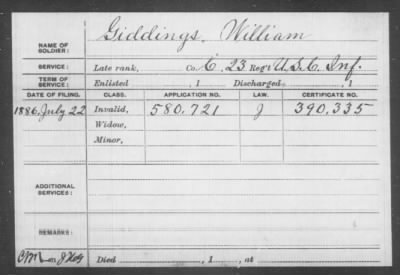 Giddings, William
NAME OF SOLDIER:
SERVICE: Late rank, Co. E, 23 Reg't U.S.C. Inf.
TERM OF SERVICE: Enlisted , 1 Discharged , 1
DATE OF FILING. CLASS. APPLICATION NO. LAW. CERTIFICATE NO.
1886, July 22 Invalid, 580,721 J 390,335
Widow,
Minor,
ADDITIONAL SERVICES:
REMARKS:
Died , 1 , at